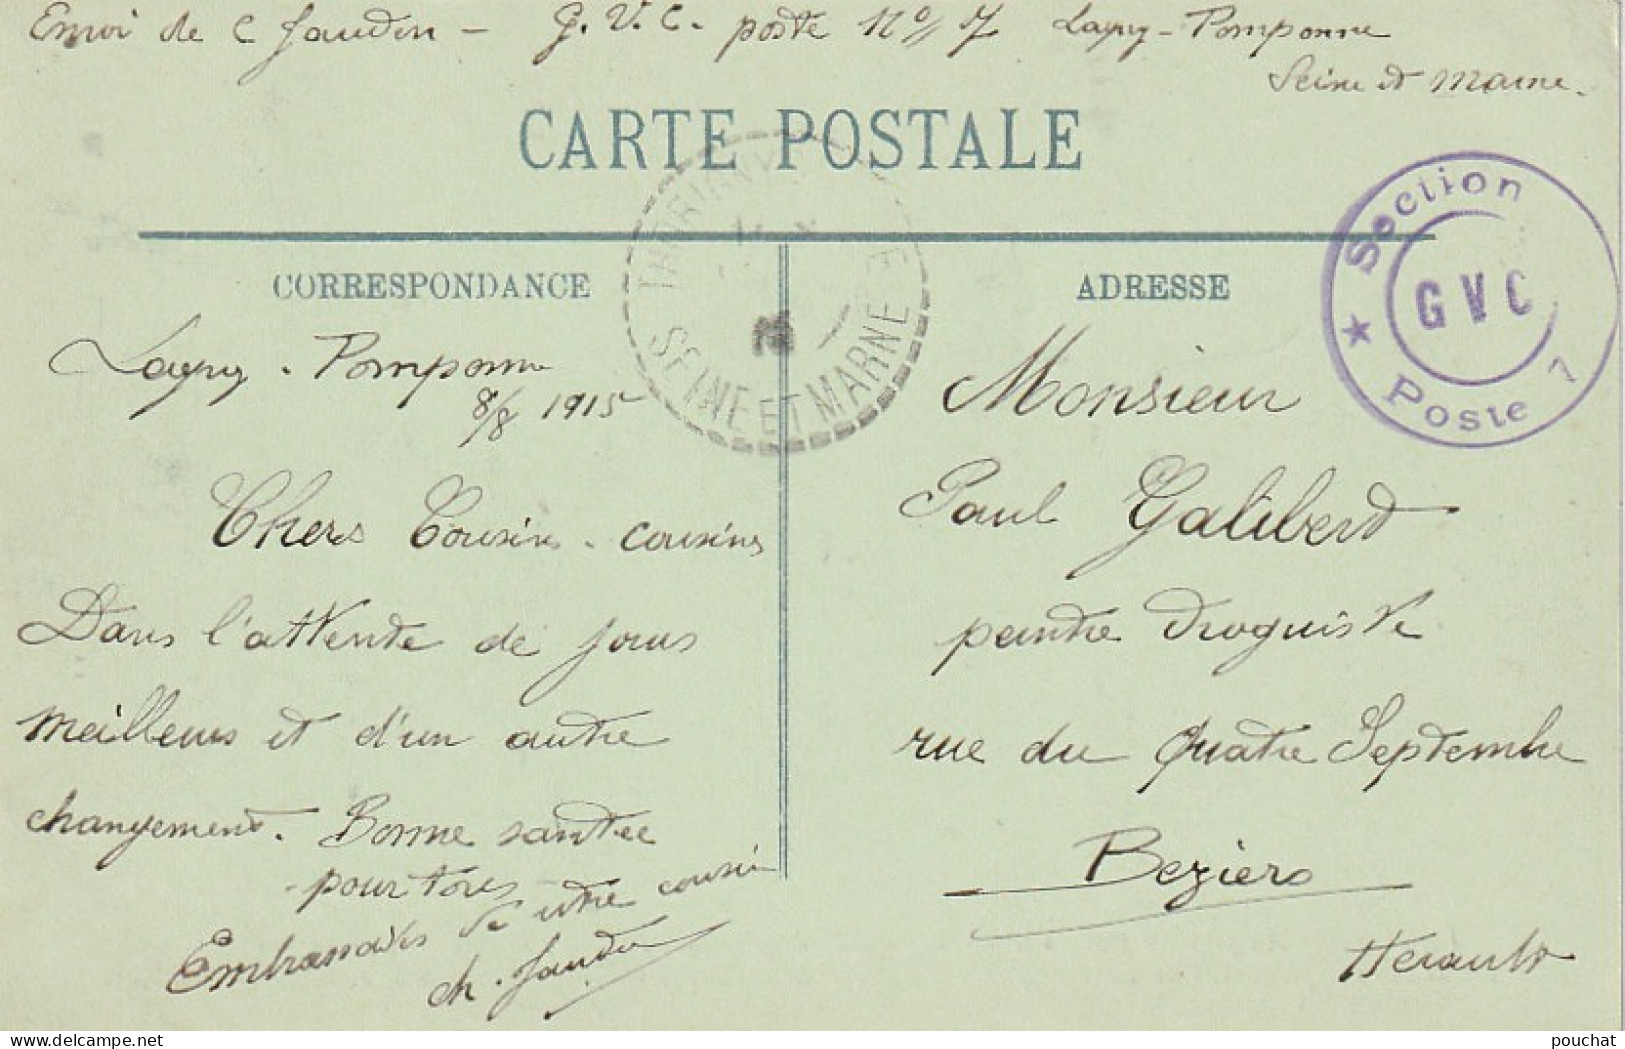 Envoi de C Jaudon – G. V. C. poste N° 7 Lagny-Pomponne
Seine et Marne.
CARTE POSTALE
CORRESPONDANCE
ADRESSE
THORIGNY
SEINE ET MARNE
Section
GVC
Poste 7
Lagny-Pomponne
8/8 1915
Chers Cousins-cousines
Dans l'attente de jours
meilleurs et d'un autre
changement. Bonne santée
pour tous
Embrassades de votre cousin
ch. Jaudon
Monsieur
Paul Galibert
peintre droguiste
rue du Quatre Septembre
Beziers
Herault
pouchat